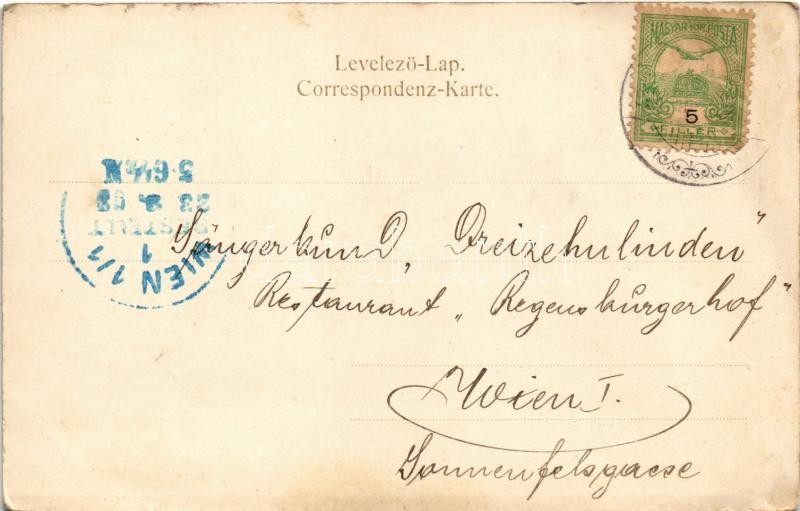 Levelező-Lap.
Correspondenz-Karte.
MAGYAR KIR. POSTA
5
FILLER
WIEN 1/1
1
BESTELLT
5·6½N
Sängerbund „Dreizehnlinden"
Restaurant „Regensburgerhof"
Wien I.
Sonnenfelsgasse